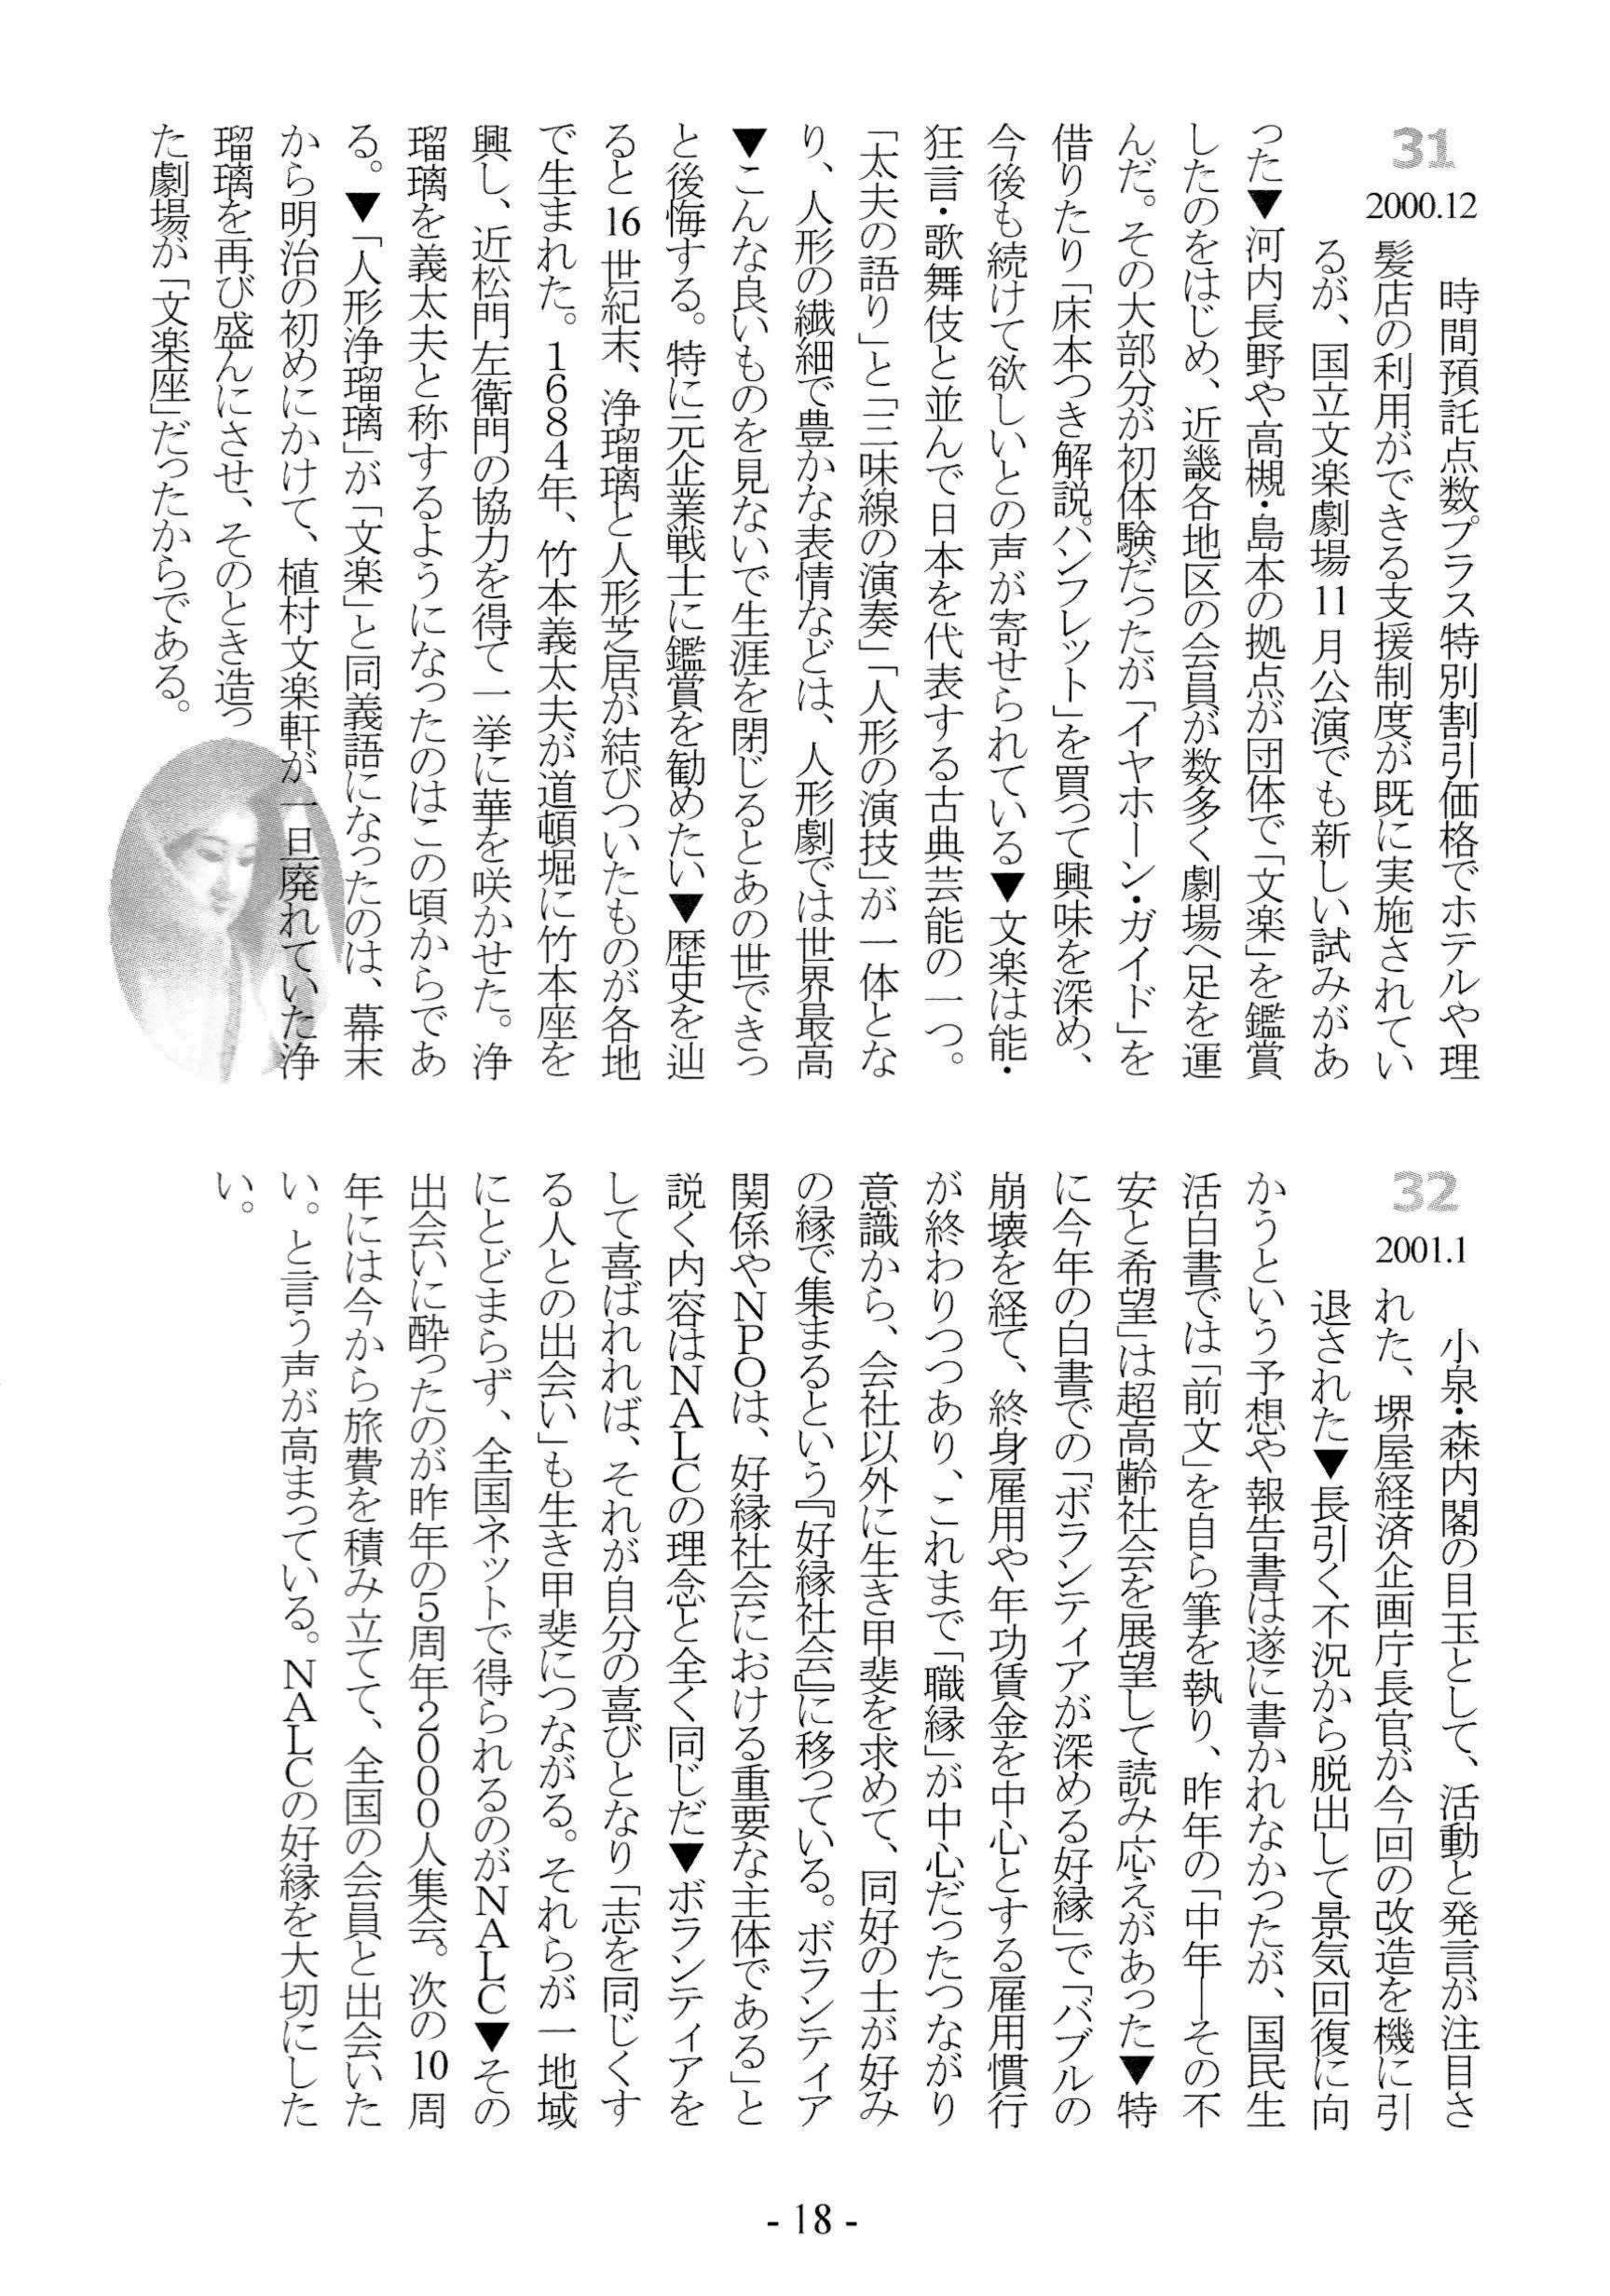 31
2000.12
時間預託点数プラス特別割引価格でホテルや理
髪店の利用ができる支援制度が既に実施されてい
るが、国立文楽劇場11月公演でも新しい試みがあ
った▼河内長野や高槻・島本の拠点が団体で「文楽」を鑑賞
したのをはじめ、近畿各地区の会員が数多く劇場へ足を運
んだ。その大部分が初体験だったが「イヤホーン・ガイド」を
借りたり「床本つき解説パンフレット」を買って興味を深め、
今後も続けて欲しいとの声が寄せられている▼文楽は能・
狂言・歌舞伎と並んで日本を代表する古典芸能の一つ。
「太夫の語り」と「三味線の演奏」「人形の演技」が一体とな
り、人形の繊細で豊かな表情などは、人形劇では世界最高
▼こんな良いものを見ないで生涯を閉じるとあの世できっ
と後悔する。特に元企業戦士に鑑賞を勧めたい▼歴史を辿
ると16世紀末、浄瑠璃と人形芝居が結びついたものが各地
で生まれた。1684年、竹本義太夫が道頓堀に竹本座を
興し、近松門左衛門の協力を得て一挙に華を咲かせた。浄
瑠璃を義太夫と称するようになったのはこの頃からであ
る。▼「人形浄瑠璃」が「文楽」と同義語になったのは、幕末
から明治の初めにかけて、植村文楽軒が一旦廃れていた浄
瑠璃を再び盛んにさせ、そのとき造っ
た劇場が「文楽座」だったからである。
32
2001.1
小泉・森内閣の目玉として、活動と発言が注目さ
れた、堺屋経済企画庁長官が今回の改造を機に引
退された▼長引く不況から脱出して景気回復に向
かうという予想や報告書は遂に書かれなかったが、国民生
活白書では「前文」を自ら筆を執り、昨年の「中年―その不
安と希望」は超高齢社会を展望して読み応えがあった▼特
に今年の白書での「ボランティアが深める好縁」で「バブルの
崩壊を経て、終身雇用や年功賃金を中心とする雇用慣行
が終わりつつあり、これまで「職縁」が中心だったつながり
意識から、会社以外に生き甲斐を求めて、同好の士が好み
の縁で集まるという『好縁社会』に移っている。ボランティア
関係やNPOは、好縁社会における重要な主体である」と
説く内容はNALCの理念と全く同じだ▼ボランティアを
して喜ばれれば、それが自分の喜びとなり「志を同じくす
る人との出会い」も生き甲斐につながる。それらが一地域
にとどまらず、全国ネットで得られるのがNALC▼その
出会いに酔ったのが昨年の5周年2000人集会。次の10周
年には今から旅費を積み立てて、全国の会員と出会いた
い。と言う声が高まっている。NALCの好縁を大切にした
い。
- 18 -